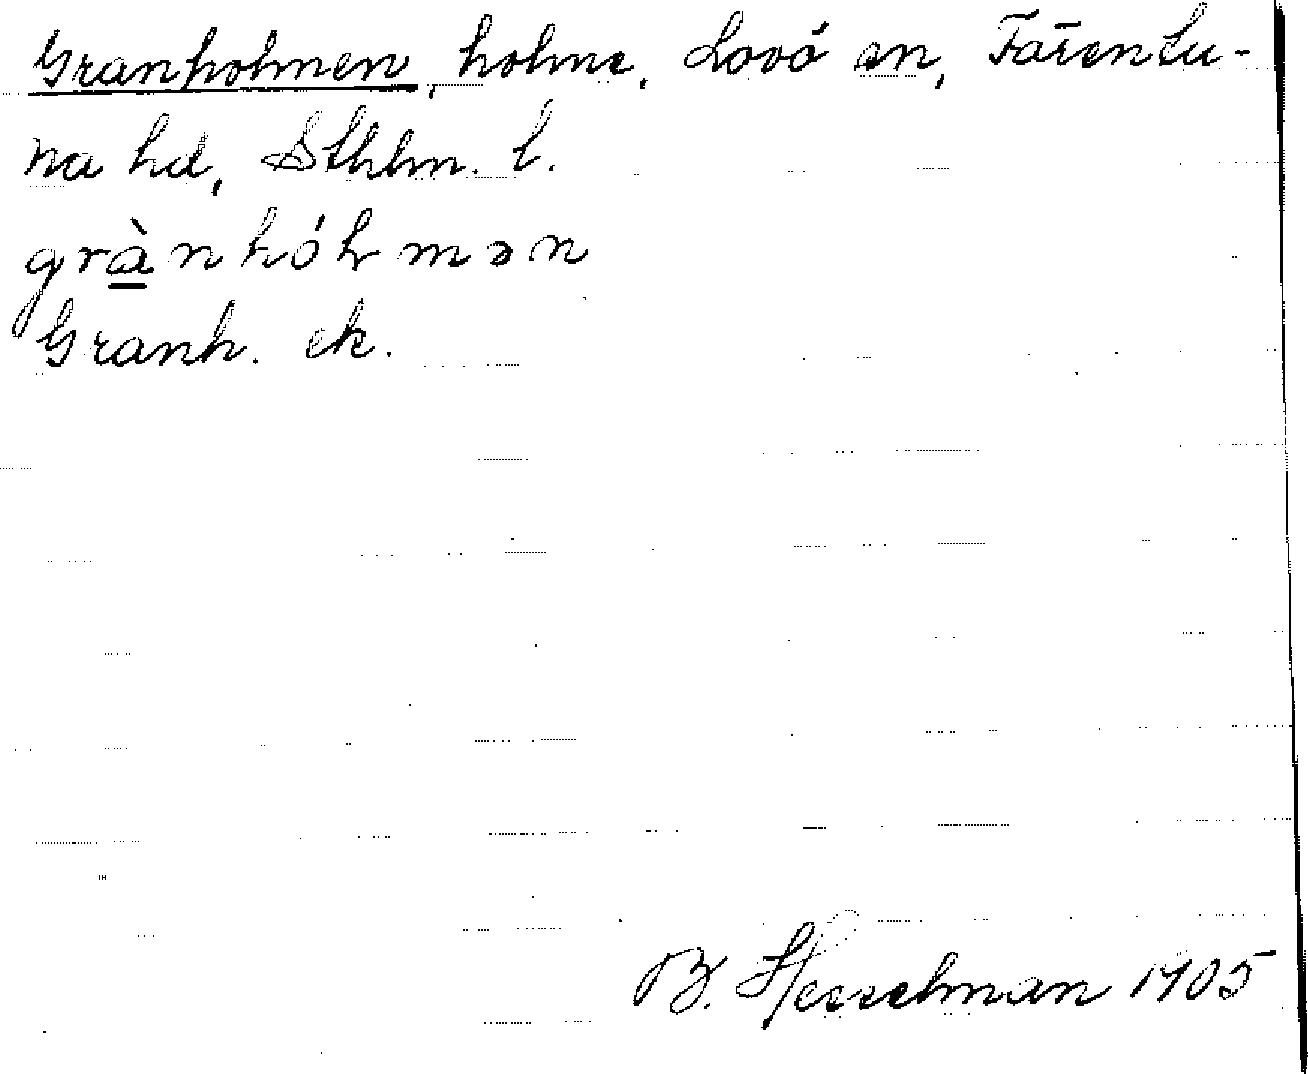 Granholmen, holme, Lovö sn, Färentu-
na hd, Sthlm. l.
grànhóɫmən
Granh. ek.
B. Hesselman 1905